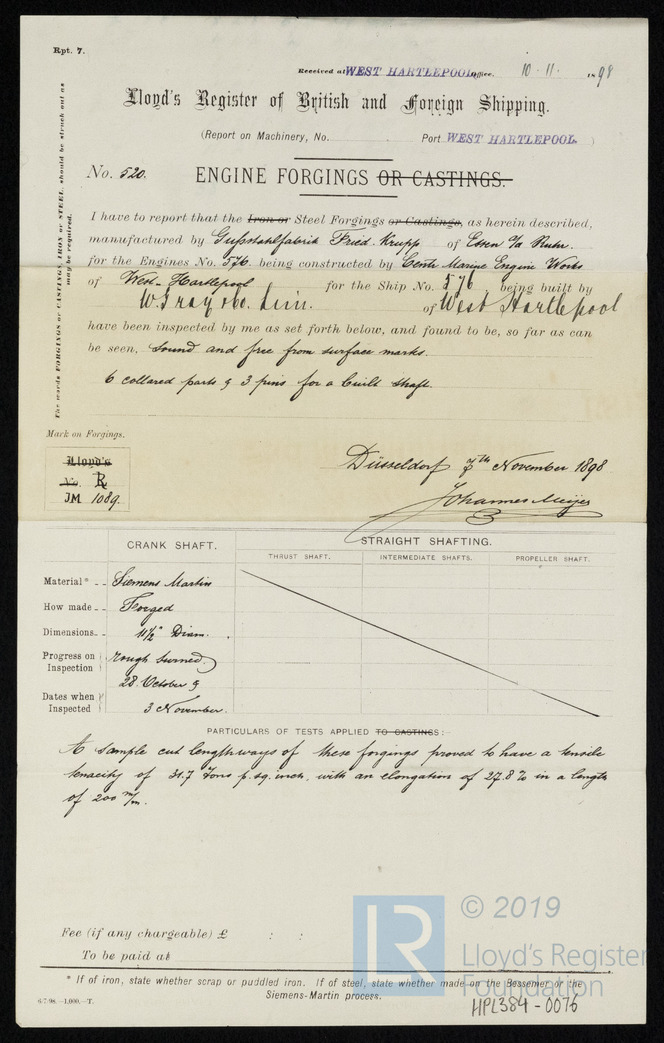 Rpt. 7.
Received at WEST HARTLEPOOL Office. 10 · 11 · 1898
Lloyd's Register of British and Foreign Shipping.
(Report on Machinery, No. Port WEST HARTLEPOOL. )
No. 520. ENGINE FORGINGS OR CASTINGS.
The words FORGINGS or CASTINGS, IRON or STEEL, should be struck out as
may be required.
I have to report that the Iron or Steel Forgings or Castings, as herein described,
manufactured by Gußstahlfabrik Fried. Krupp of Essen a/d Ruhr.
for the Engines No. 576. being constructed by Centr Marine Engine Works
of West-Hartlepool for the Ship No. 576 being built by
W. Gray & Co. Lim. of West Hartlepool
have been inspected by me as set forth below, and found to be, so far as can
be seen, sound and free from surface marks.
6 collared parts & 3 pins for a built shaft.
Mark on Forgings.
Lloyd's
No. R
JM 1089.
Düsseldorf 7th November 1898
Johannes Meijer
CRANK SHAFT. STRAIGHT SHAFTING.
THRUST SHAFT. INTERMEDIATE SHAFTS. PROPELLER SHAFT.
Material* Siemens Martin
How made Forged
Dimensions 11½" Diam.
Progress on Inspection rough turned
Dates when Inspected 28. October &
3 November.
PARTICULARS OF TESTS APPLIED TO CASTINGS:—
A sample cut lengthways of these forgings proved to have a tensile
tenacity of 31.7 tons p. sq. inch. with an elongation of 27.8 % in a length
of 200 m/m.
Fee (if any chargeable) £ : :
To be paid at
* If of iron, state whether scrap or puddled iron. If of steel, state whether made on the Bessemer or the
Siemens-Martin process.
6·7·98.—1,000.—T.
© 2019
LR
Lloyd's Register
Foundation
HPL384-0076